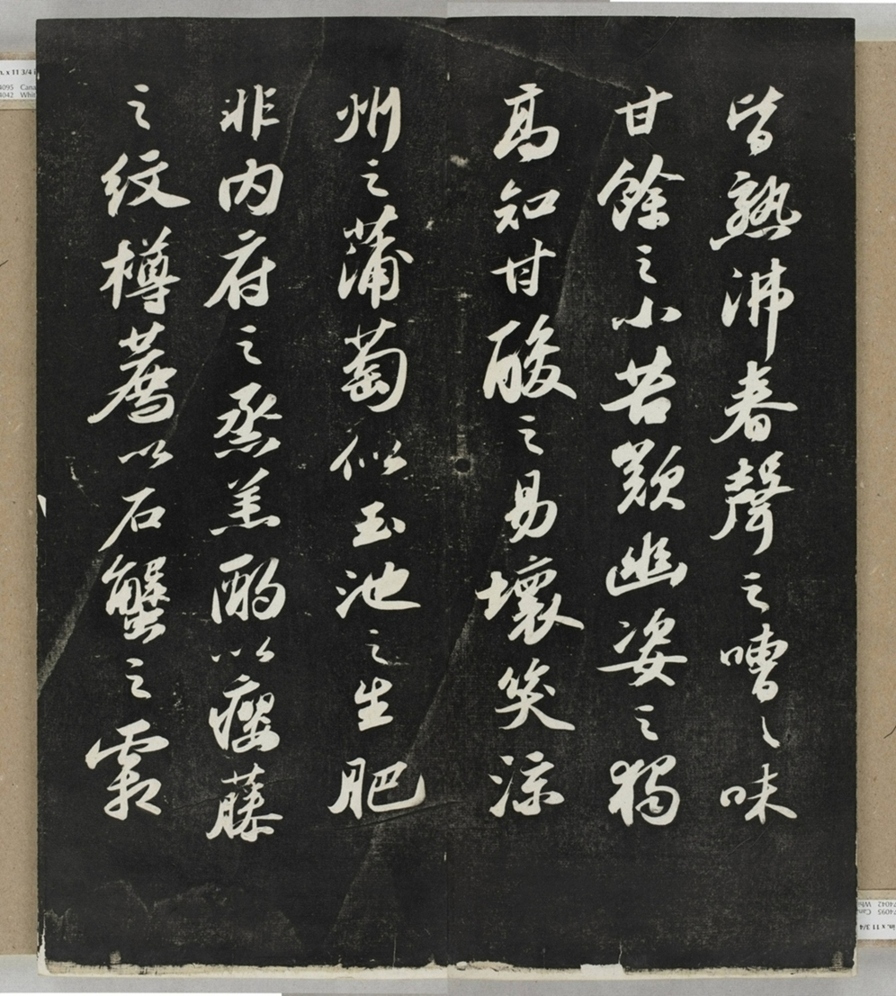 皆熟沸舂聲之嘈〻味
甘餘之小苦歎幽姿之獨
高知甘酸之易壞笑涼
州之蒲萄似玉池之生肥
非内府之烝羔酌以癭藤
之紋樽薦以石蟹之霜